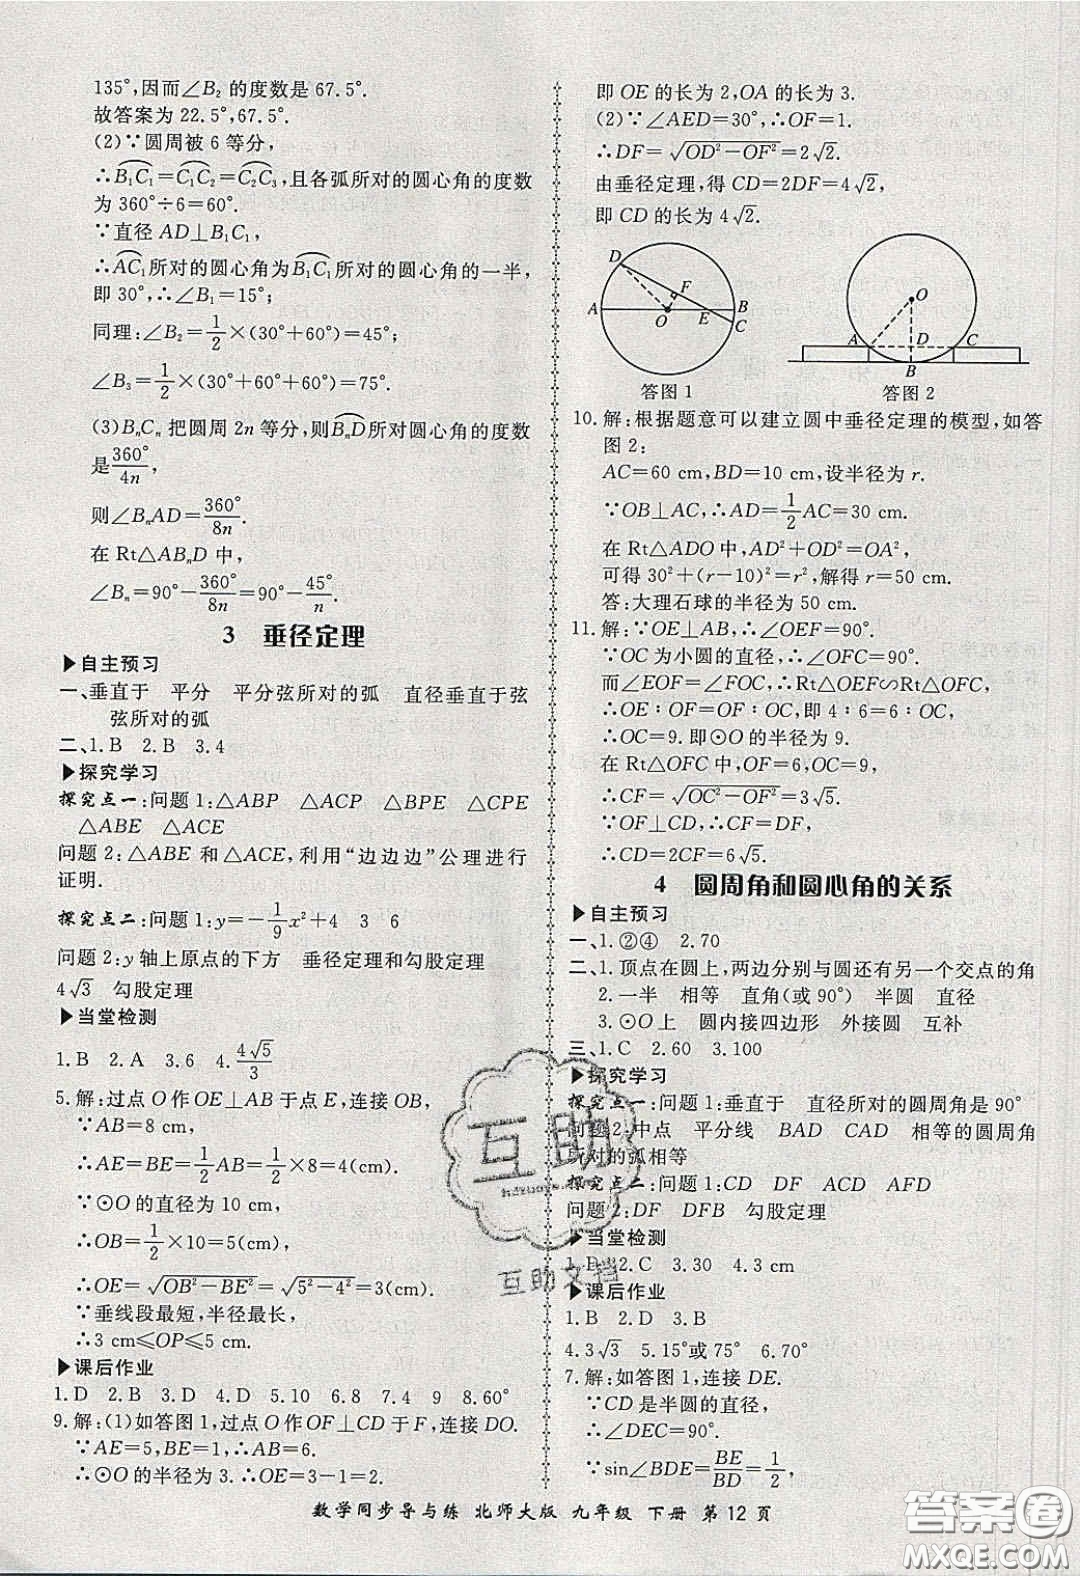 135°,因而∠B₂的度数是67.5°.
故答案为22.5°,67.5°.
(2)∵圆周被6等分,
∴B₁C₁=C₁C₂=C₂C₃,且各弧所对的圆心角的度数
为360°÷6=60°.
∵直径AD⊥B₁C₁,
∴AC₁所对的圆心角为B₁C₁所对的圆心角的一半,
即30°,∴∠B₁=15°;
同理:∠B₂=1/2×(30°+60°)=45°;
∠B₃=1/2×(30°+60°+60°)=75°.
(3)BₙCₙ把圆周2n等分,则BₙD所对圆心角的度数
是360°/4n,
则∠BₙAD=360°/8n.
在Rt△ABₙD中,
∠Bₙ=90°-360°/8n=90°-45°/n.
3 垂径定理
▶自主预习
一、垂直于 平分 平分弦所对的弧 直径垂直于弦
弦所对的弧
二、1.B 2.B 3.4
▶探究学习
探究点一:问题1:△ABP △ACP △BPE △CPE
△ABE △ACE
问题2:△ABE和△ACE,利用“边边边”公理进行
证明.
探究点二:问题1:y=-1/9x²+4 3 6
问题2:y轴上原点的下方 垂径定理和勾股定理
4√3 勾股定理
▶当堂检测
1.B 2.A 3.6 4.4√5/3
5.解:过点O作OE⊥AB于点E,连接OB,
∵AB=8 cm,
∴AE=BE=1/2AB=1/2×8=4(cm)
∵⊙O的直径为10 cm,
∴OB=1/2×10=5(cm),
∴OE=√(OB²-BE²)=√(5²-4²)=3(cm).
∵垂线段最短,半径最长,
∴3 cm≤OP≤5 cm.
▶课后作业
1.D 2.B 3.D 4.D 5.10 6.8 7.4 9 8.60°
9.解:(1)如答图1,过点O作OF⊥CD于F,连接DO.
∵AE=5,BE=1,∴AB=6.
∴⊙O的半径为3.∴OE=3-1=2.
即OE的长为2,OA的长为3.
(2)∵∠AED=30°,∴OF=1.
∴DF=√(OD²-OF²)=2√2.
由垂径定理,得CD=2DF=4√2,
即CD的长为4√2.
D F A O E B C
O A D C B
答图1 答图2
10.解:根据题意可以建立圆中垂径定理的模型,如答
图2:
AC=60 cm,BD=10 cm,设半径为r.
∵OB⊥AC,∴AD=1/2AC=30 cm.
在Rt△ADO中,AD²+OD²=OA²,
可得30²+(r-10)²=r²,解得r=50 cm.
答:大理石球的半径为50 cm.
11.解:∵OE⊥AB,∴∠OEF=90°.
∵OC为小圆的直径,∴∠OFC=90°.
而∠EOF=∠FOC,∴Rt△OEF∽Rt△OFC,
∴OE∶OF=OF∶OC,即4∶6=6∶OC,
∴OC=9.即⊙O的半径为9.
在Rt△OFC中,OF=6,OC=9,
∴CF=√(OC²-OF²)=3√5.
∵OF⊥CD,∴CF=DF,
∴CD=2CF=6√5.
4 圆周角和圆心角的关系
▶自主预习
一、1.②④ 2.70
二、1.顶点在圆上,两边分别与圆还有另一个交点的角
2.一半 相等 直角(或90°) 半圆 直径
3.⊙O上 圆内接四边形 外接圆 互补
三、1.C 2.60 3.100
▶探究学习
探究点一:问题1:垂直于 直径所对的圆周角是90°
问题2:中点 平分线 BAD CAD 相等的圆周角
所对的弧相等
探究点二:问题1:CD DF ACD AFD
问题2:DF DFB 勾股定理
▶当堂检测
1.D 2.C 3.30 4.3 cm
▶课后作业
1.B 2.D 3.B
4.3√3 5.15°或75° 6.70°
7.解:如答图1,连接DE.
∵CD是半圆的直径,
∴∠DEC=90°.
∵sin∠BDE=BE/BD=1/2,
数学同步导与练 北师大版 九年级 下册 第12页
互助
互助文档
答案圈
MXQE.COM